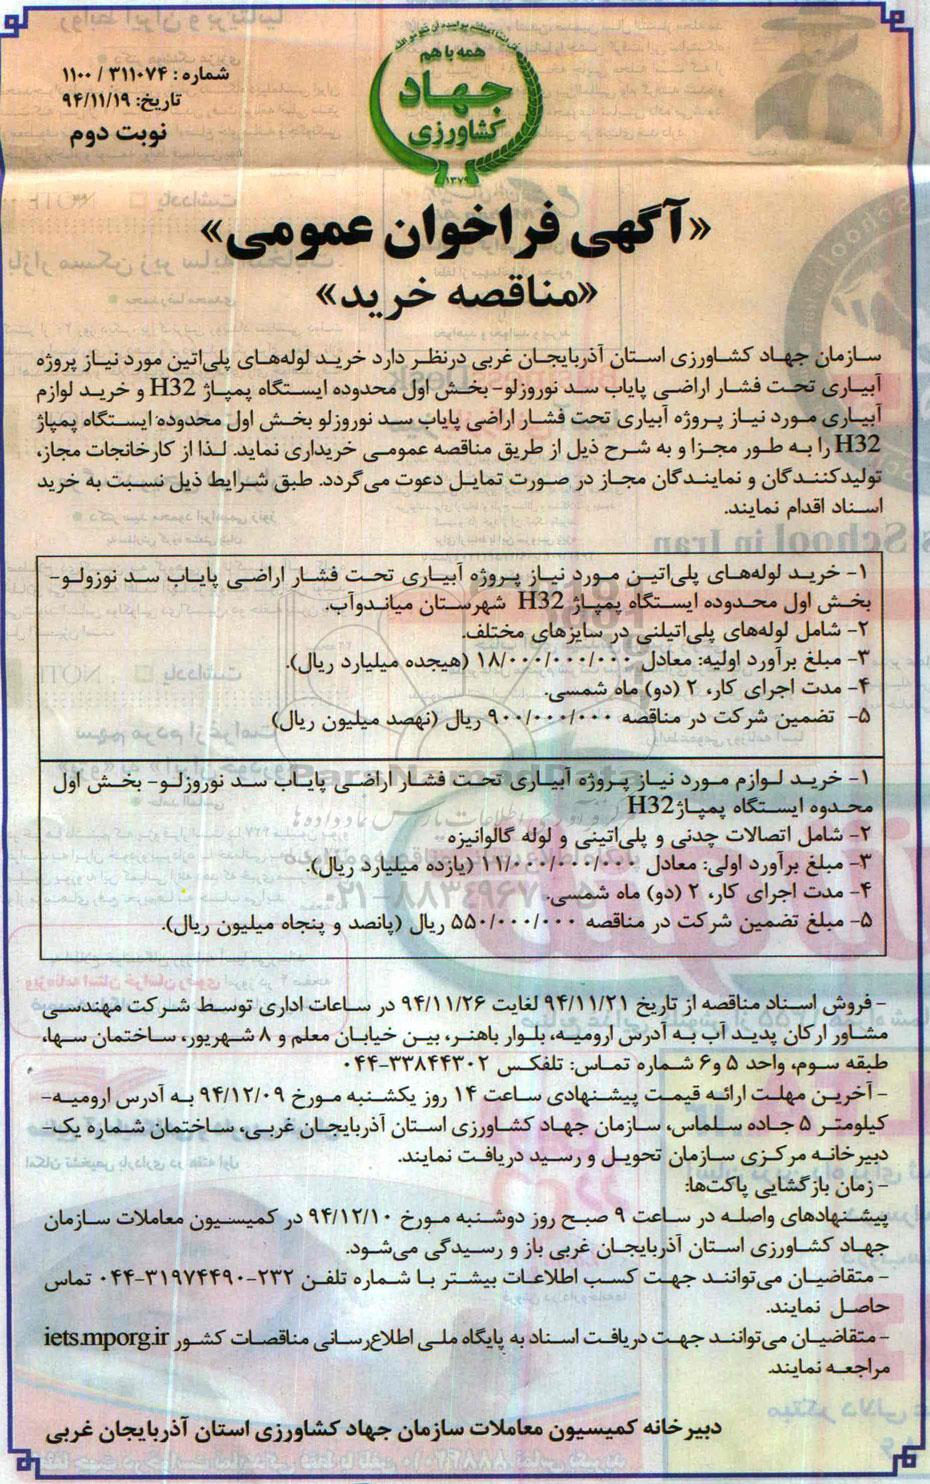 همه با هم
جهاد
کشاورزی
۱۳۷۹
شماره : ۳۱۱۰۷۴ / ۱۱۰۰
تاریخ: ۹۴/۱۱/۱۹
نوبت دوم
«آگهی فراخوان عمومی»
«مناقصه خرید»
سازمان جهاد کشاورزی استان آذربایجان غربی درنظر دارد خرید لوله‌های پلی‌اتین مورد نیاز پروژه
آبیاری تحت فشار اراضی پایاب سد نوروزلو- بخش اول محدوده ایستگاه پمپاژ H32 و خرید لوازم
آبیاری مورد نیاز پروژه آبیاری تحت فشار اراضی پایاب سد نوروزلو بخش اول محدوده ایستگاه پمپاژ
H32 را به طور مجزا و به شرح ذیل از طریق مناقصه عمومی خریداری نماید. لذا از کارخانجات مجاز،
تولیدکنندگان و نمایندگان مجاز در صورت تمایل دعوت می‌گردد. طبق شرایط ذیل نسبت به خرید
اسناد اقدام نمایند.
۱- خرید لوله‌های پلی‌اتین مورد نیاز پروژه آبیاری تحت فشار اراضی پایاب سد نوزولو-
بخش اول محدوده ایستگاه پمپاژ H32 شهرستان میاندوآب.
۲- شامل لوله‌های پلی‌اتیلنی در سایزهای مختلف.
۳- مبلغ برآورد اولیه: معادل ۱۸/۰۰۰/۰۰۰/۰۰۰ (هیجده میلیارد ریال).
۴- مدت اجرای کار، ۲ (دو) ماه شمسی.
۵- تضمین شرکت در مناقصه ۹۰۰/۰۰۰/۰۰۰ ریال (نهصد میلیون ریال)
۱- خرید لوازم مورد نیاز پروژه آبیاری تحت فشار اراضی پایاب سد نوروزلو- بخش اول
محدوه ایستگاه پمپاژH32
۲- شامل اتصالات چدنی و پلی‌اتینی و لوله گالوانیزه
۳- مبلغ برآورد اولی: معادل ۱۱/۰۰۰/۰۰۰/۰۰۰ (یازده میلیارد ریال).
۴- مدت اجرای کار، ۲ (دو) ماه شمسی.
۵- مبلغ تضمین شرکت در مناقصه ۵۵۰/۰۰۰/۰۰۰ ریال (پانصد و پنجاه میلیون ریال).
- فروش اسناد مناقصه از تاریخ ۹۴/۱۱/۲۱ لغایت ۹۴/۱۱/۲۶ در ساعات اداری توسط شرکت مهندسی
مشاور ارکان پدید آب به آدرس ارومیه، بلوار باهنر، بین خیابان معلم و ۸ شهریور، ساختمان سها،
طبقه سوم، واحد ۵ و۶ شماره تماس: تلفکس ۳۳۸۴۴۳۰۲-۰۴۴
- آخرین مهلت ارائه قیمت پیشنهادی ساعت ۱۴ روز یکشنبه مورخ ۹۴/۱۲/۰۹ به آدرس ارومیه-
کیلومتر ۵ جاده سلماس، سازمان جهاد کشاورزی استان آذربایجان غربی، ساختمان شماره یک-
دبیرخانه مرکزی سازمان تحویل و رسید دریافت نمایند.
- زمان بازگشایی پاکت‌ها:
پیشنهادهای واصله در ساعت ۹ صبح روز دوشنبه مورخ ۹۴/۱۲/۱۰ در کمیسیون معاملات سازمان
جهاد کشاورزی استان آذربایجان غربی باز و رسیدگی می‌شود.
- متقاضیان می‌توانند جهت کسب اطلاعات بیشتر با شماره تلفن ۲۳۲-۳۱۹۷۴۴۹۰-۰۴۴ تماس
حاصل نمایند.
- متقاضیان می‌توانند جهت دریافت اسناد به پایگاه ملی اطلاع‌رسانی مناقصات کشور iets.mporg.ir
مراجعه نمایند.
دبیرخانه کمیسیون معاملات سازمان جهاد کشاورزی استان آذربایجان غربی